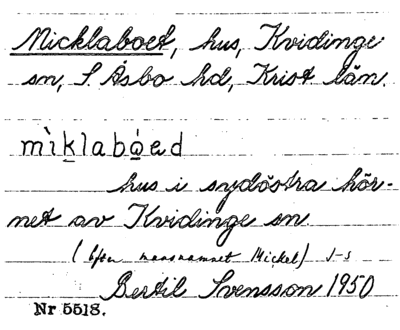 Micklaboet, hus, Kvidinge
sn, S. Åsbo hd, Krist län.
mìk̲labó̲ad
hus i sydöstra hör-
net av Kvidinge sn.
(Efter mansnamnet Mickel) J-s
Bertil Svensson 1950
Nr 5518.